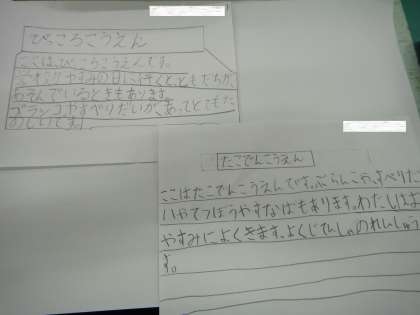 ぴっころこうえん
ここは、ぴっころこうえんです。
やすみの日に行くと、ともだちが、
あそんでいるときもあります。
ブランコやすべりだいが、あってとてもた
のしいです。
たこでんこうえん
ここはたこでんこうえんです。ぶらんこや、すべりだ
いやてつぼうやすなばもあります。わたしはよ
やすみによくきます。よくじてんしゃのれんしゅう
す。